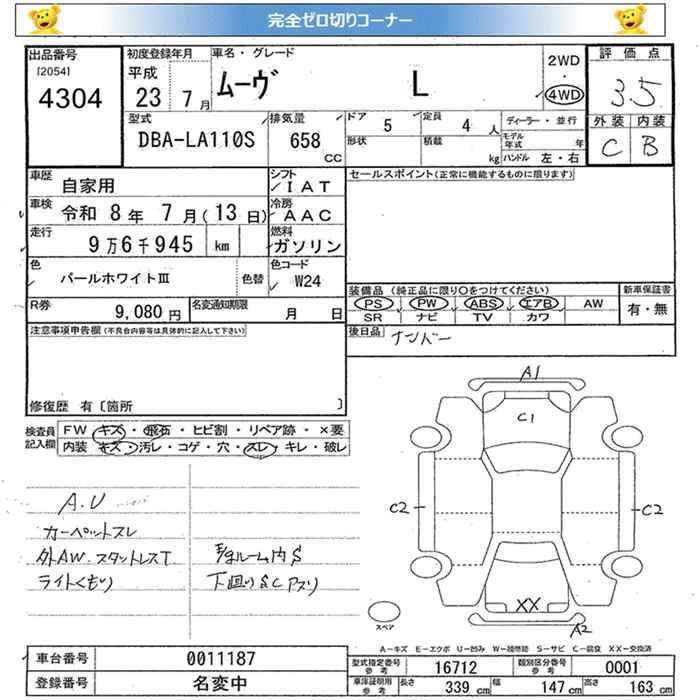 完全ゼロ切りコーナー
出品番号
[2054]
4304
初度登録年月
平成
23 7月
車名・グレード
ムーヴ L
2WD
・
4WD
評価点
3.5
外装 内装
C B
型式
DBA-LA110S
排気量
658
CC
ドア
5
形状
定員
4 人
積載
kg
ディーラー・並行
モデル年式 年
ハンドル 左・右
車歴
自家用
シフト
IAT
車検
令和 8年 7月(13日)
冷房
AAC
走行
9万6千945 km
燃料
ガソリン
色
パールホワイトⅢ
色替
色コード
W24
R券
9,080円
名変通知期限
月 日
セールスポイント(正常に機能するものに限ります)
装備品 (純正品に限り○をつけてください)
PS PW ABS エアB AW
SR ナビ TV カワ
新車保証書
有・無
後日品
ナンバー
注意事項申告欄(不具合内容等は具体的に記入して下さい)
修復歴 有〔箇所 〕
検査員記入欄
FW キズ・飛石・ヒビ割・リペア跡・×要
内装 キズ・汚レ・コゲ・穴・スレ・キレ・破レ
A.U
カーペットスレ
外AW.スタットレスT
ライトくもり
ルーム内S
下廻りSCアスリ
A1
C1
C2
C2
XX
A2
スペア
A-キズ E-エクボ U-凹み W-補修跡 S-サビ C-腐食 XX-交換済
車台番号
0011187
登録番号
名変中
型式指定番号
参考
16712
類別区分番号
参考
0001
車庫証明用
参考
長さ
339 cm
幅
147 cm
高さ
163 cm